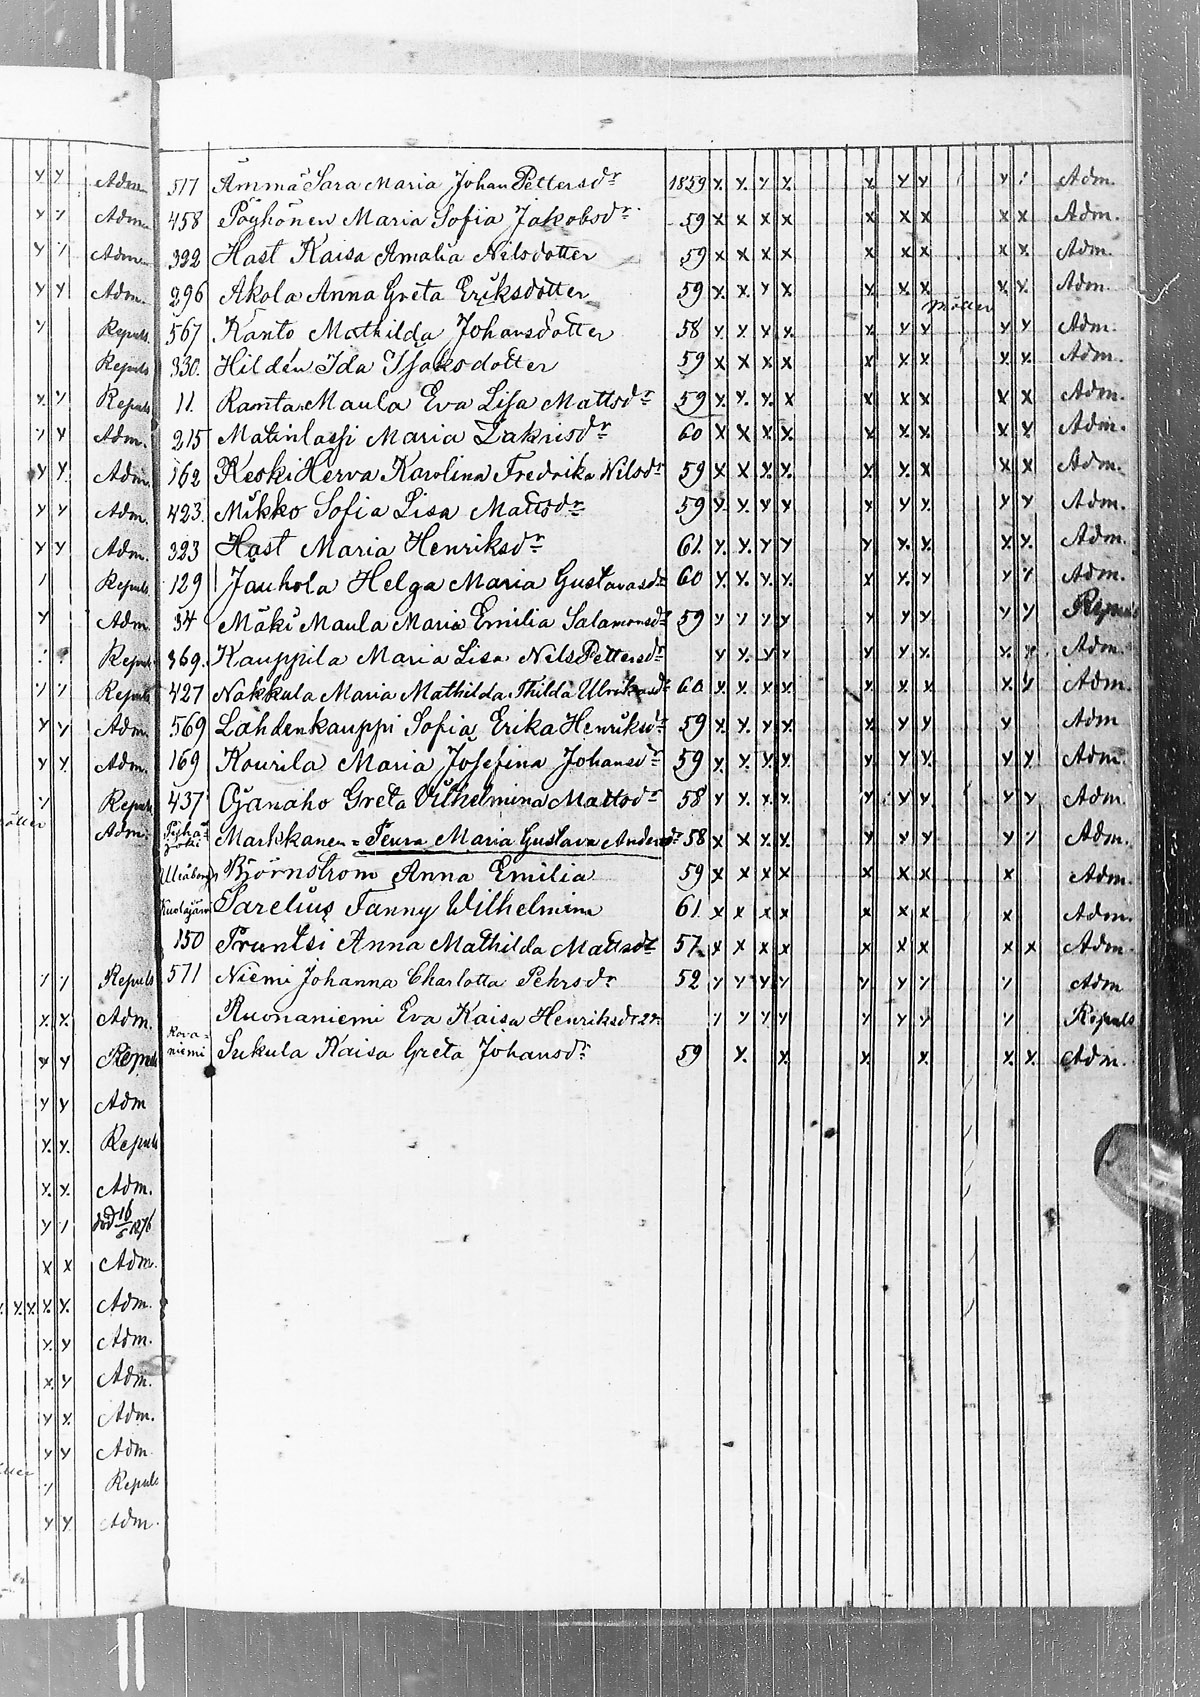 Adm. 517 Ämmä Sara Maria Johan Pettersdr 1859 x x x x x x x x Adm.
Adm. 458 Pöyhönen Maria Sofia Jakobsdr 59 x x x x x x x x x Adm.
Adm. 322 Hast Kaisa Amalia Nilsdotter 59 x x x x x x x x x Adm.
Adm. 296 Akola Anna Greta Eriksdotter 59 x x x x x x x x x Adm.
möller
Repuls 567 Kanto Mathilda Johansdotter 58 x x x x x x x x x Adm.
Repuls 330. Hildén Ida Isaksdotter 59 x x x x x x x x x Adm.
Repuls 11. Ranta Maula Eva Lisa Mattsdr 59 x x x x x x x x x Adm.
Adm. 215 Matinlassi Maria Zakrisdr 60 x x x x x x x x x Adm.
Adm. 162 Keski Herva Karolina Fredrika Nilsdr 59 x x x x x x x x x Adm.
Adm. 423. Mikko Sofia Lisa Mattsdr 59 x x x x x x x x x Adm.
Adm. 323 Hast Maria Henriksdr 61. x x x x x x x x x Adm.
Repuls 129 Jauhola Helga Maria Gustavasdr 60 x x x x x x x x x Adm.
Adm. 34 Mäki Maula Maria Emilia Salamonsdr 59 x x x x x x x x x Repuls
Repuls 369. Kauppila Maria Lisa Nils Pettersdr x x x x x x x x x Adm.
Repuls 427 Nakkula Maria Mathilda Thilda Ulrikasdr 60 x x x x x x x x x Adm.
Adm. 569 Lahdenkauppi Sofia Erika Henriksdr 59 x x x x x x x x Adm
Adm. 169 Kourila Maria Josefina Johansdr 59 x x x x x x x x x Adm.
Repuls 437 Ojanaho Greta Vilhelmina Mattsdr 58 x x x x x x x x x Adm.
Adm. Pyhäjoki Markkanen = Peura Maria Gustava Andersdr 58 x x x x x x x x Adm.
Uleåborg Björnström Anna Emilia 59 x x x x x x x x Adm.
Kuolajärvi Sarelius Fanny Wilhelmina 61. x x x x x x x x Adm.
150 Pruntsi Anna Mathilda Mattsdr 57 x x x x x x x x x Adm.
Repuls 571 Niemi Johanna Charlotta Pehrsdr 52 x x x x x x x Adm
Adm. Ruonaniemi Eva Kaisa Henriksdr x x x x x x x Repuls
Repuls Rovaniemi Sukula Kaisa Greta Johansdr 59 x x x x x x Adm.
x x Adm
x x Repuls
x x Adm.
död 16/5 1876
x x Adm.
x x x x Adm.
x x Adm.
x x Adm.
x x Adm.
x x Adm
Repuls
x x Adm.